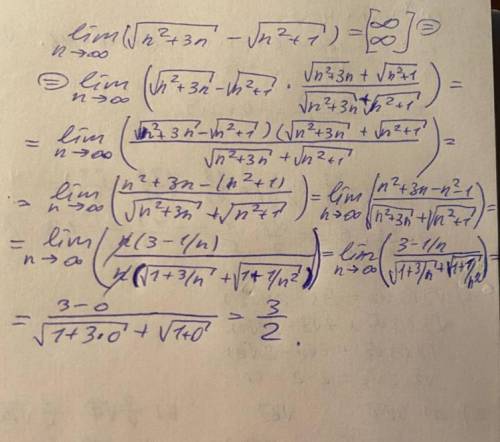 lim n→∞ (√(n²+3n) − √(n²+1)) = [∞/∞] ⊜
⊜ lim n→∞ (√(n²+3n) − √(n²+1) · (√(n²+3n) + √(n²+1))/(√(n²+3n) + √(n²+1))) =
= lim n→∞ ((√(n²+3n) − √(n²+1))(√(n²+3n) + √(n²+1))/(√(n²+3n) + √(n²+1))) =
= lim n→∞ ((n²+3n−(n²+1))/(√(n²+3n) + √(n²+1))) = lim n→∞ ((n²+3n−n²−1)/(√(n²+3n) + √(n²+1))) =
= lim n→∞ (n(3−1/n)/(n(√(1+3/n) + √(1+1/n²)))) = lim n→∞ ((3−1/n)/(√(1+3/n) + √(1+1/n²))) =
= (3−0)/(√(1+3·0) + √(1+0)) = 3/2.